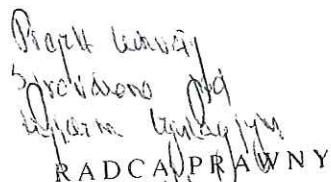 Projekt umowy
Sprawdzono pod
względem legislacyjnym
RADCA PRAWNY